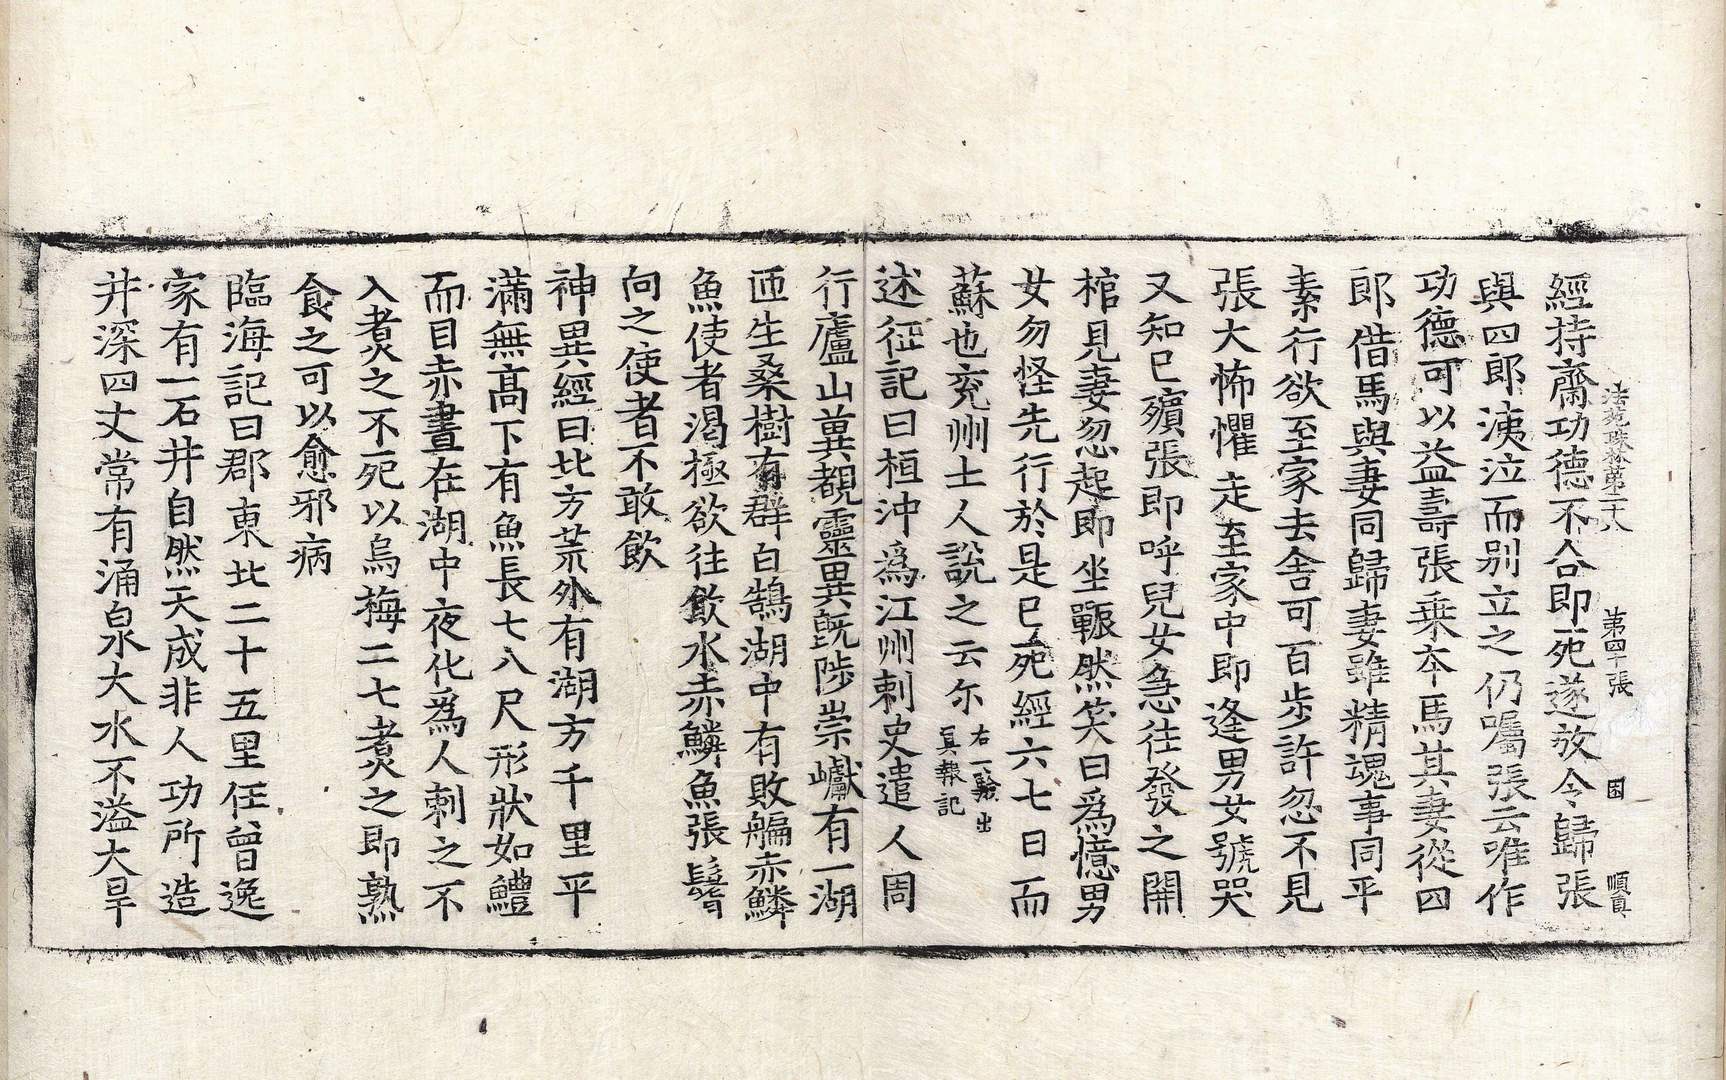 法苑珠林第二十八 第四十張 因 順貞
經持齋功德不合即死遂放令歸張
與四郎洟泣而别立之仍囑張云唯作
功德可以益壽張乗夲馬其妻從四
郎借馬與妻同歸妻雖精魂事同平
素行欲至家去舍可百步許忽不見
張大怖懼走至家中即逢男女號哭
又知已殯張即呼兒女急往發之開
棺見妻忽起即坐冁然笑曰爲憶男
女勿怪先行於是已死經六七日而
蘇也兖州士人說之云尓
右一驗出
冥報記
述征記曰桓沖爲江州刺史遣人周
行廬山冀覩靈異旣陟崇巘有一湖
匝生桑樹有群白鵠湖中有敗艑赤鱗
魚使者渴極欲往飲水赤鱗魚張鬐
向之使者不敢飲
神異經曰北方荒外有湖方千里平
滿無高下有魚長七八尺形狀如鱧
而目赤晝在湖中夜化爲人刺之不
入煮之不死以烏梅二七煮之即熟
食之可以愈邪病
臨海記曰郡東北二十五里任曾逸
家有一石井自然天成非人功所造
井深四丈常有涌泉大水不溢大旱